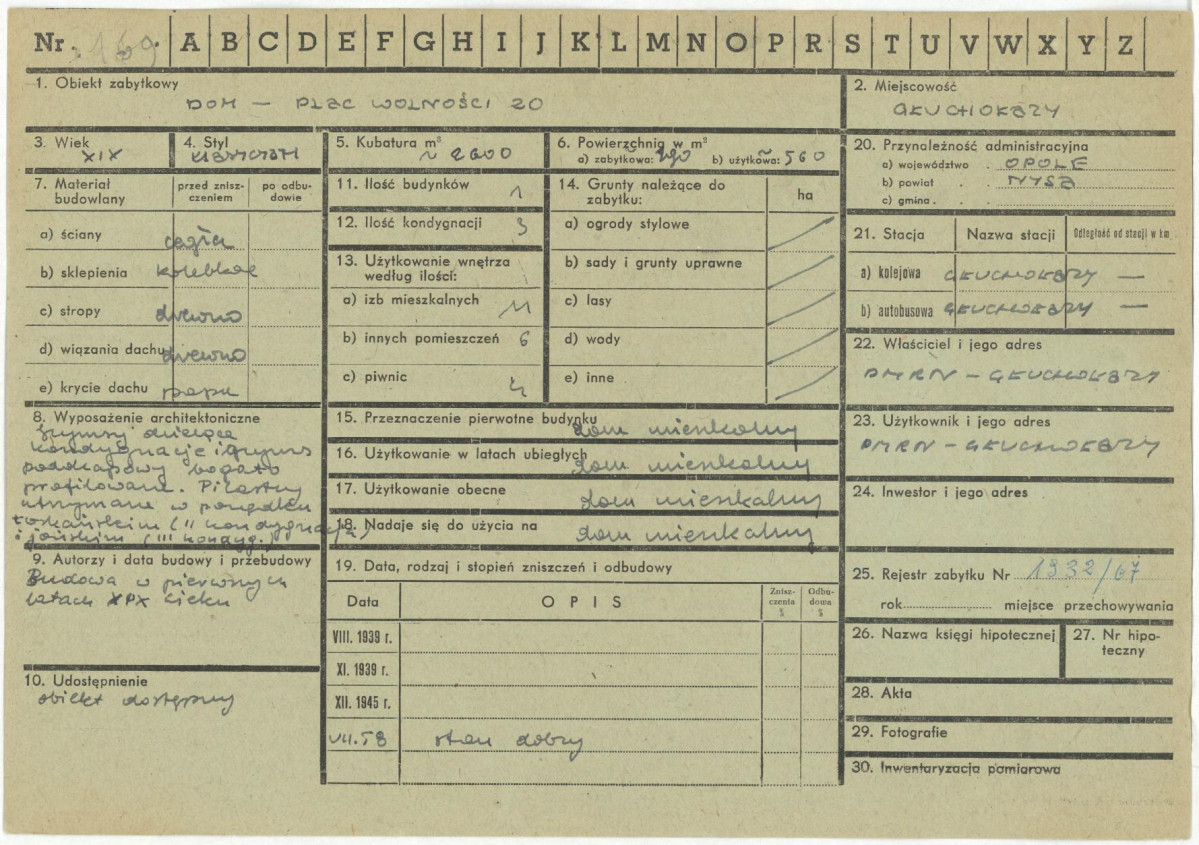 Nr.
A B C D E F G H I J K L M N O P R S T U V W X Y Z
1. Obiekt zabytkowy
DOM — PLAC WOLNOŚCI 20
2. Miejscowość
GŁUCHOŁAZY
3. Wiek
XIX
4. Styl
5. Kubatura m³
~ 2600
6. Powierzchnia w m²
a) zabytkowa: 290 b) użytkowa: ~560
20. Przynależność administracyjna
a) województwo . OPOLE
b) powiat . . NYSA
c) gmina . .
7. Materiał budowlany
przed zniszczeniem
po odbudowie
a) ściany cegła
b) sklepienia kolebkoe
c) stropy drewno
d) wiązania dachu drewno
e) krycie dachu papa
11. Ilość budynków 1
12. Ilość kondygnacji 3
13. Użytkowanie wnętrza
według ilości:
a) izb mieszkalnych 11
b) innych pomieszczeń 6
c) piwnic 4
14. Grunty należące do
zabytku:
ha
a) ogrody stylowe
b) sady i grunty uprawne
c) lasy
d) wody
e) inne
21. Stacja
Nazwa stacji
Odległość od stacji w km
a) kolejowa GŁUCHOŁAZY —
b) autobusowa GŁUCHOŁAZY —
22. Właściciel i jego adres
PMRN — GŁUCHOŁAZY
8. Wyposażenie architektoniczne
Gzymsy dzielące
kondygnacje i gzyms
podokapowy bogato
profilowane. Pilastry
utrzymane w porządku
toskańskim (II kondygnacja)
i jońskim (III kondyg.)
15. Przeznaczenie pierwotne budynku
dom mieszkalny
16. Użytkowanie w latach ubiegłych
dom mieszkalny
17. Użytkowanie obecne
dom mieszkalny
18. Nadaje się do użycia na
dom mieszkalny
23. Użytkownik i jego adres
PMRN — GŁUCHOŁAZY
24. Inwestor i jego adres
9. Autorzy i data budowy i przebudowy
Budowa w pierwszych
latach XIX wieku
10. Udostępnienie
obiekt dostępny
19. Data, rodzaj i stopień zniszczeń i odbudowy
Data
OPIS
Zniszczenia %
Odbudowa %
VIII. 1939 r.
XI. 1939 r.
XII. 1945 r.
VII.58 stan dobry
25. Rejestr zabytku Nr 1332/67
rok miejsce przechowywania
26. Nazwa księgi hipotecznej
27. Nr hipoteczny
28. Akta
29. Fotografie
30. Inwentaryzacja pomiarowa